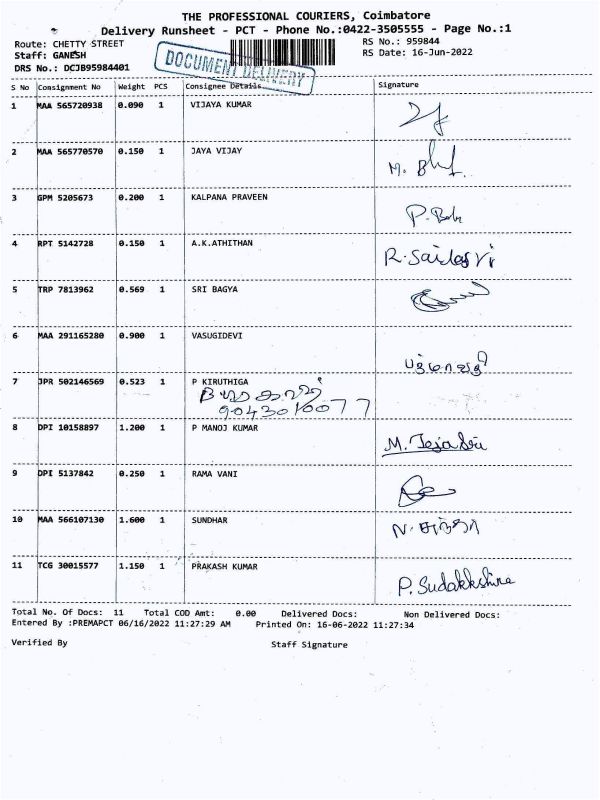 THE PROFESSIONAL COURIERS, Coimbatore
Delivery Runsheet - PCT - Phone No.:0422-3505555 - Page No.:1
Route: CHETTY STREET
RS No.: 959844
Staff: GANESH
RS Date: 16-Jun-2022
DRS No.: DCJB95984401
DOCUMENT DELIVERY
S No Consignment No Weight PCS Consignee Details Signature
1 MAA 565720938 0.090 1 VIJAYA KUMAR
2 MAA 565770570 0.150 1 JAYA VIJAY
M.
3 GPM 5205673 0.200 1 KALPANA PRAVEEN
P.
4 RPT 5142728 0.150 1 A.K.ATHITHAN
R.
5 TRP 7813962 0.569 1 SRI BAGYA
6 MAA 291165280 0.900 1 VASUGIDEVI
பத்மாவதி
7 JPR 502146569 0.523 1 P KIRUTHIGA
9043010077
8 DPI 10158897 1.200 1 P MANOJ KUMAR
M. TejaSri
9 DPI 5137842 0.250 1 RAMA VANI
10 MAA 566107130 1.600 1 SUNDHAR
N.
11 TCG 30015577 1.150 1 PRAKASH KUMAR
P. Sudakkshina
Total No. Of Docs: 11 Total COD Amt: 0.00 Delivered Docs: Non Delivered Docs:
Entered By :PREMAPCT 06/16/2022 11:27:29 AM Printed On: 16-06-2022 11:27:34
Verified By Staff Signature